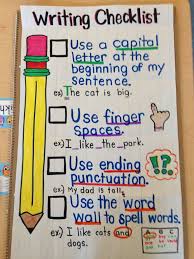 Writing Checklist
Use a capital
letter at the
beginning of my
sentence.
ex) The cat is big.
Use finger
spaces.
ex.) I_like_the_park.
Use ending
punctuation.
ex.) My dad is tall.
!?.
Use the word
wall to spell words.
ex.) I like cats and
dogs.
A B C